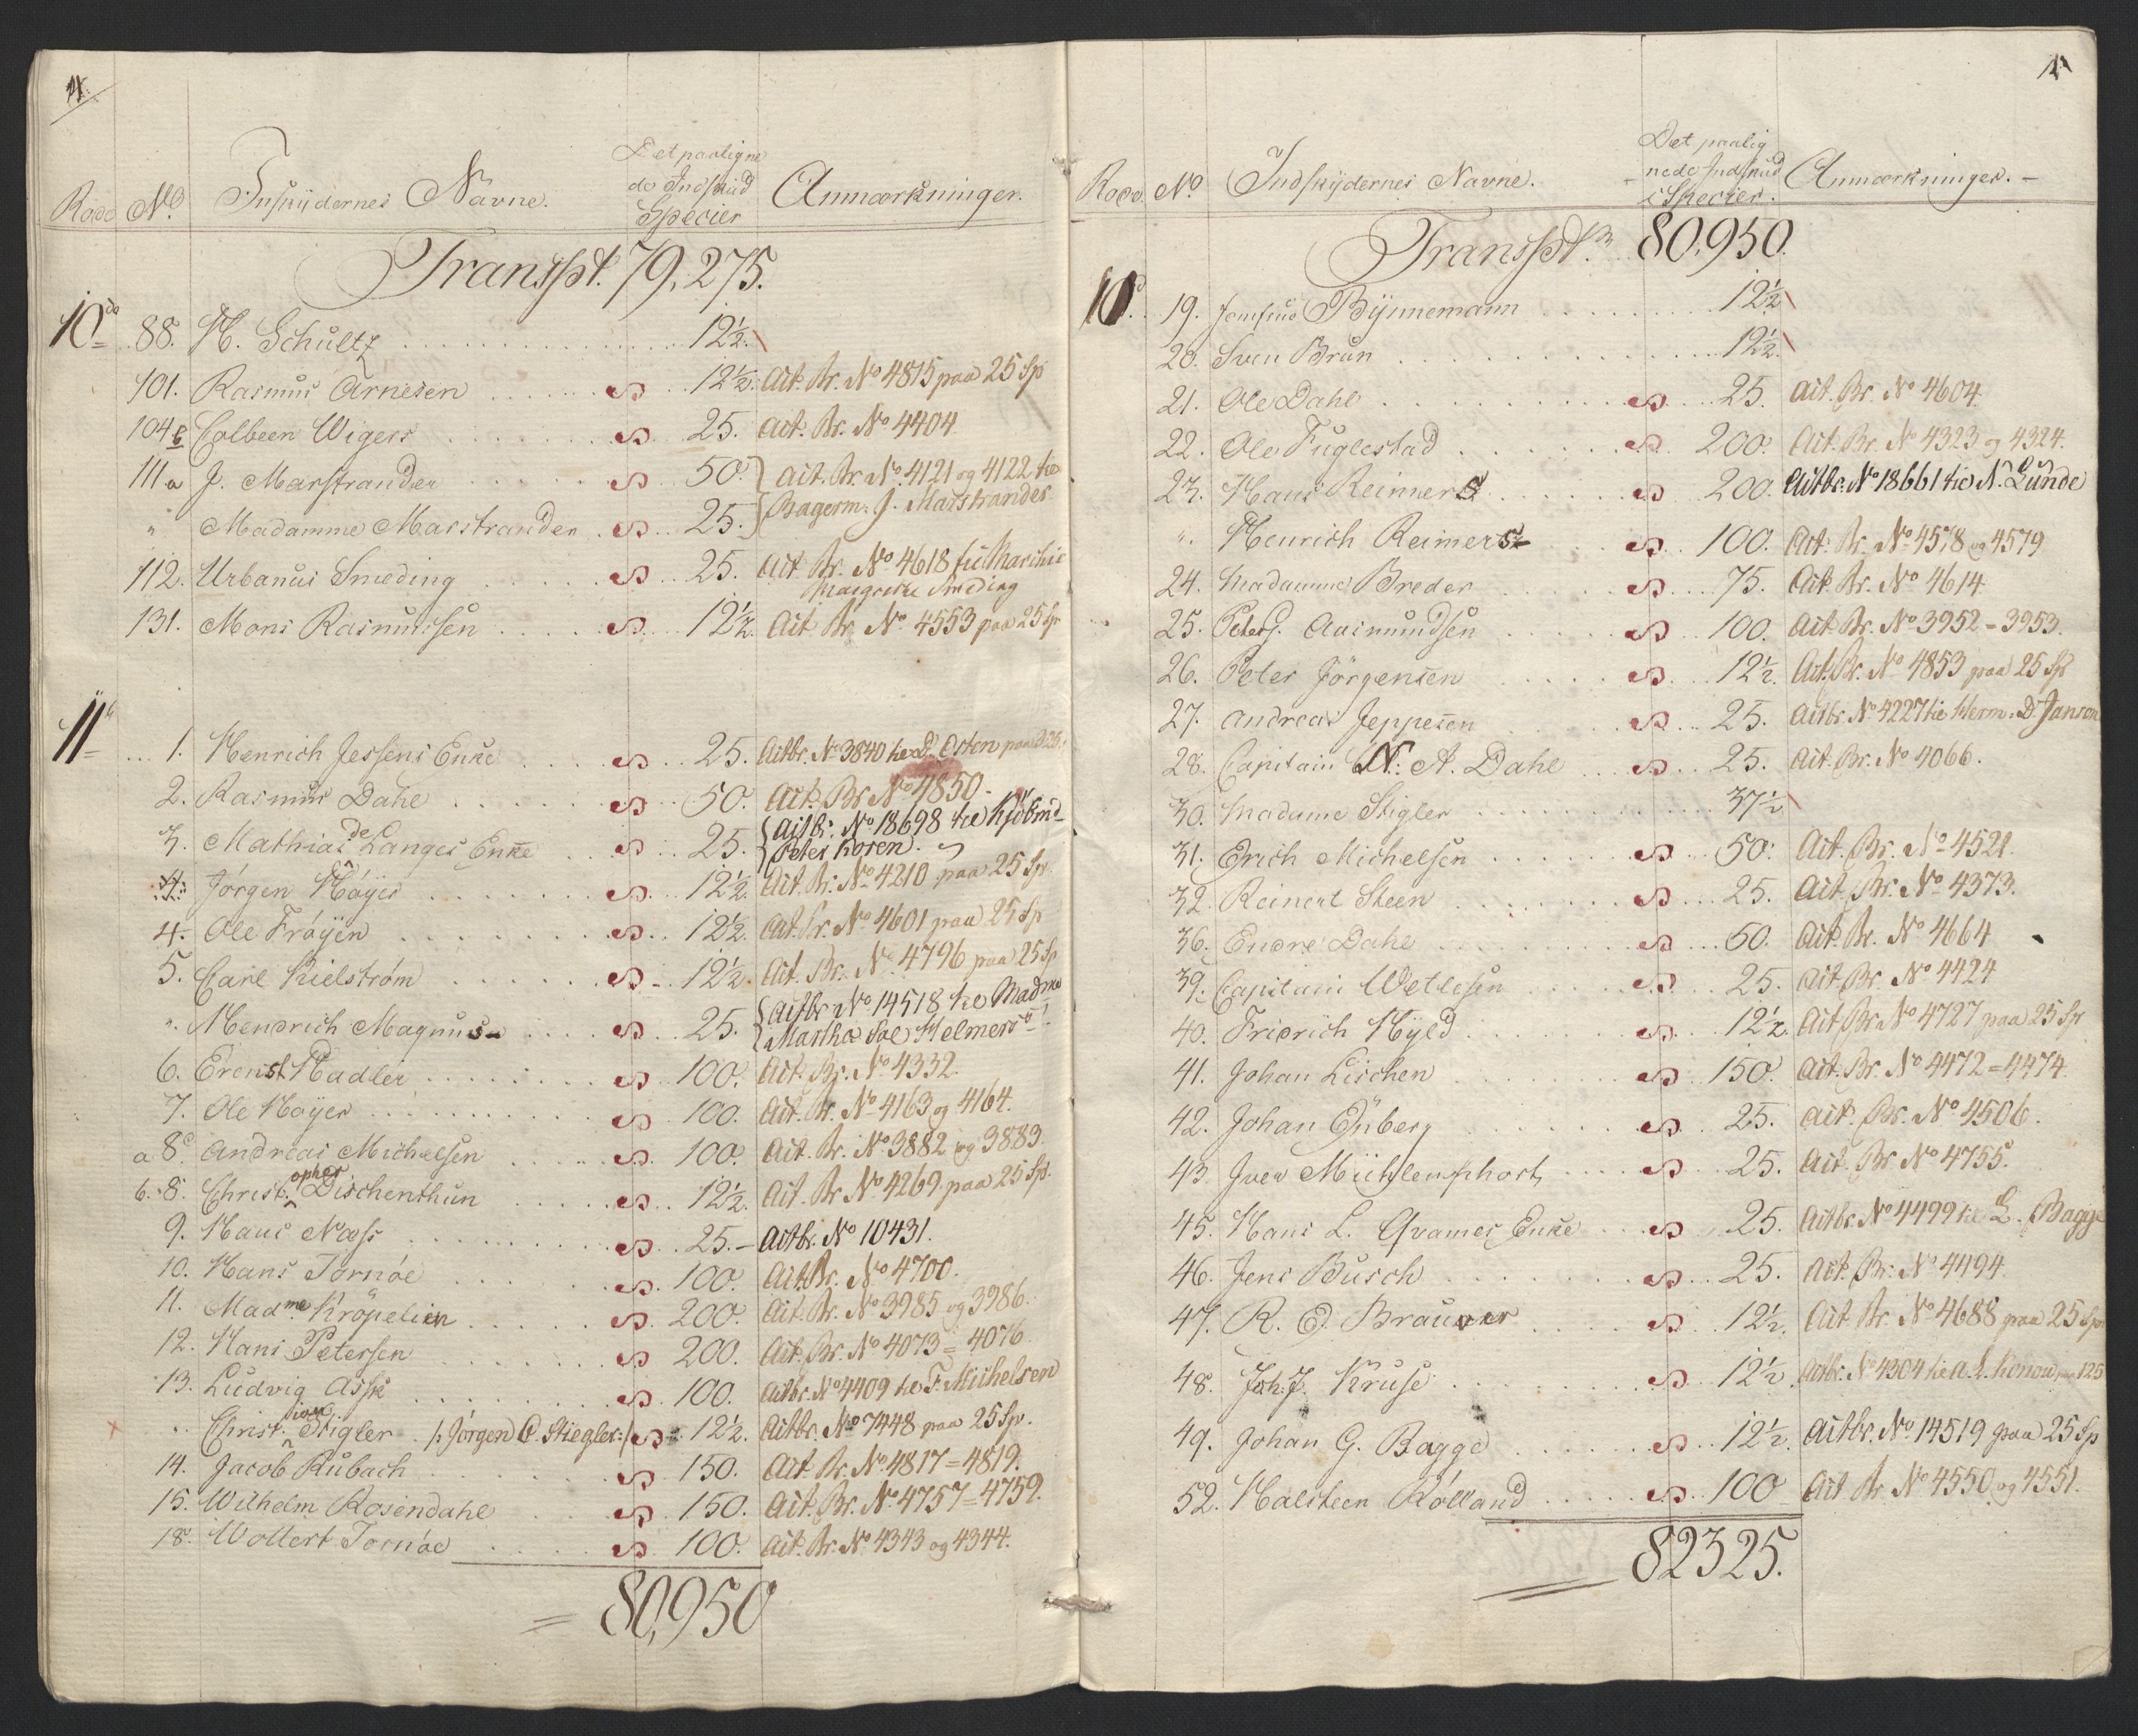 Rode No. Indskydernes Navne. Det paaligne
de Indskud
Species Anmærkninger.
Transpt. 79,275.
10de 88. H. Schultz 12½.
101. Rasmus Arnesen 12½. Act. Br. No 4815 paa 25 Sp
104 b Colbeen Wigers 25. Act. Br. No 4404
111 a J. Marstrander 50. Act. Br. No 4121 og 4122 til
" Madamme Marstrander 25. Bagerm. J. Marstrander
112. Urbanus Smeding 25. Act. Br. No 4618 til Marthie
Margrethe Smeding
131. Mons Rasmussen 12½. Act. Br. No 4553 paa 25 Sp
11te 1. Henrich Jessens Enke 25. Actbr. No 3840 til D. Osten paa
2. Rasmus Dahl 50. Act. Br. No 4850.
3. Mathias de Langes Enke 25. Actbr. No 18698 til Kjøbmd
Peter Koren.
4. Jørgen Høyer 12½. Act. Br. No 4210 paa 25 Sp.
4. Ole Frøyen 12½. Act. Br. No 4601 paa 25 Sp
5. Carl Kielstrøm 12½. Act. Br. No 4796 paa 25 Sp
". Hendrich Magnus 25. Actbr. No 14518 til Madme
Martha Sal. Helmers
6. Ernst Hadler 100. Act. Br. No 4332.
7. Ole Høyer 100. Act. Br. No 4163 og 4164.
a 8. Andreas Michelsen 100. Act. Br. No 3882 og 3883.
b. 8. Christopher Dischenthun 12½. Act. Br. No 4269 paa 25 Sp.
9. Hans Næss 25. Actbr. No 10431.
10. Hans Tornøe 100. Act. Br. No 4700.
11. Madme Krøpelien 200. Act. Br. No 3985 og 3986.
12. Hans Petersen 200. Act. Br. No 4073 = 4076.
13. Ludvig Ask 100. Actbr. No 4409 til F. Michelsen
" Christian Stigler /: Jørgen C. Stiegler :/ 12½. Actbr. No 7448 paa 25 Sp.
14. Jacob Rubach 150. Act. Br. No 4817 = 4819.
15. Wilhelm Rosendahl 150. Act. Br. No 4757 = 4759.
18. Wollert Tornøe 100. Act. Br. No 4343 og 4344.
= 80,950
Rode. No. Indskydernes Navne. Det paalig
nede Indskud
i Specier. Anmærkninger.
Transpt. 80,950.
19. Jomfrue Bynnemann 12½
20. Sven Brun 12½.
21. Ole Dahl 25. Act. Br. No 4604.
22. Ole Fuglestad 200. Act. Br. No 4323 og 4324.
23. Hans Reimers 200. Actbr. No 18661 til N. Lunde
". Henrich Reimers 100. Act. Br. No 4578 og 4579
24. Madamme Breder 75. Act. Br. No 4614
25. Peter J. Aasmundsen 100. Act. Br. No 3952 = 3953.
26. Peter Jørgensen 12½. Act. Br. No 4853 paa 25 Sp
27. Andreas Jeppesen 25. Actbr. No 4227 til Herm. D. Janson
28. Capitain N. A. Dahl 25. Act. Br. No 4066.
30. Madame Stigler 37½
31. Erich Michelsen 50. Act. Br. No 4521.
32. Reinert Steen 25. Act. Br. No 4373.
36. Endre Dahl 50. Act. Br. No 4664
39. Capitain Wetlesen 25. Act. Br. No 4424
40. Fridrich Hyld 12½. Act. Br. No 4727 paa 25 Sp
41. Johan Lischen 150. Act. Br. No 4472 = 4474.
42. Johan Enberg 25. Act. Br. No 4506.
43. Iver Mühlenphort 25. Act. Br. No 4755.
45. Hans L. Qvames Enke 25. Actbr. No 4499 til L. Bagge
46. Jens Busch 25. Act. Br. No 4494.
47. R. E. Brauner 12½. Act. Br. No 4688 paa 25 Sp
48. Joh. J. Kruse 12½. Actbr. No 4304 til A. L. Konow paa 125
49. Johan G. Bagge 12½. Actbr. No 14519 paa 25 Sp
52. Halsteen Rolland 100 Act. Br. No 4550 og 4551.
82325.